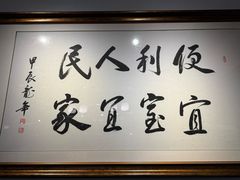 便利人民
宜室冝家
甲辰龍年